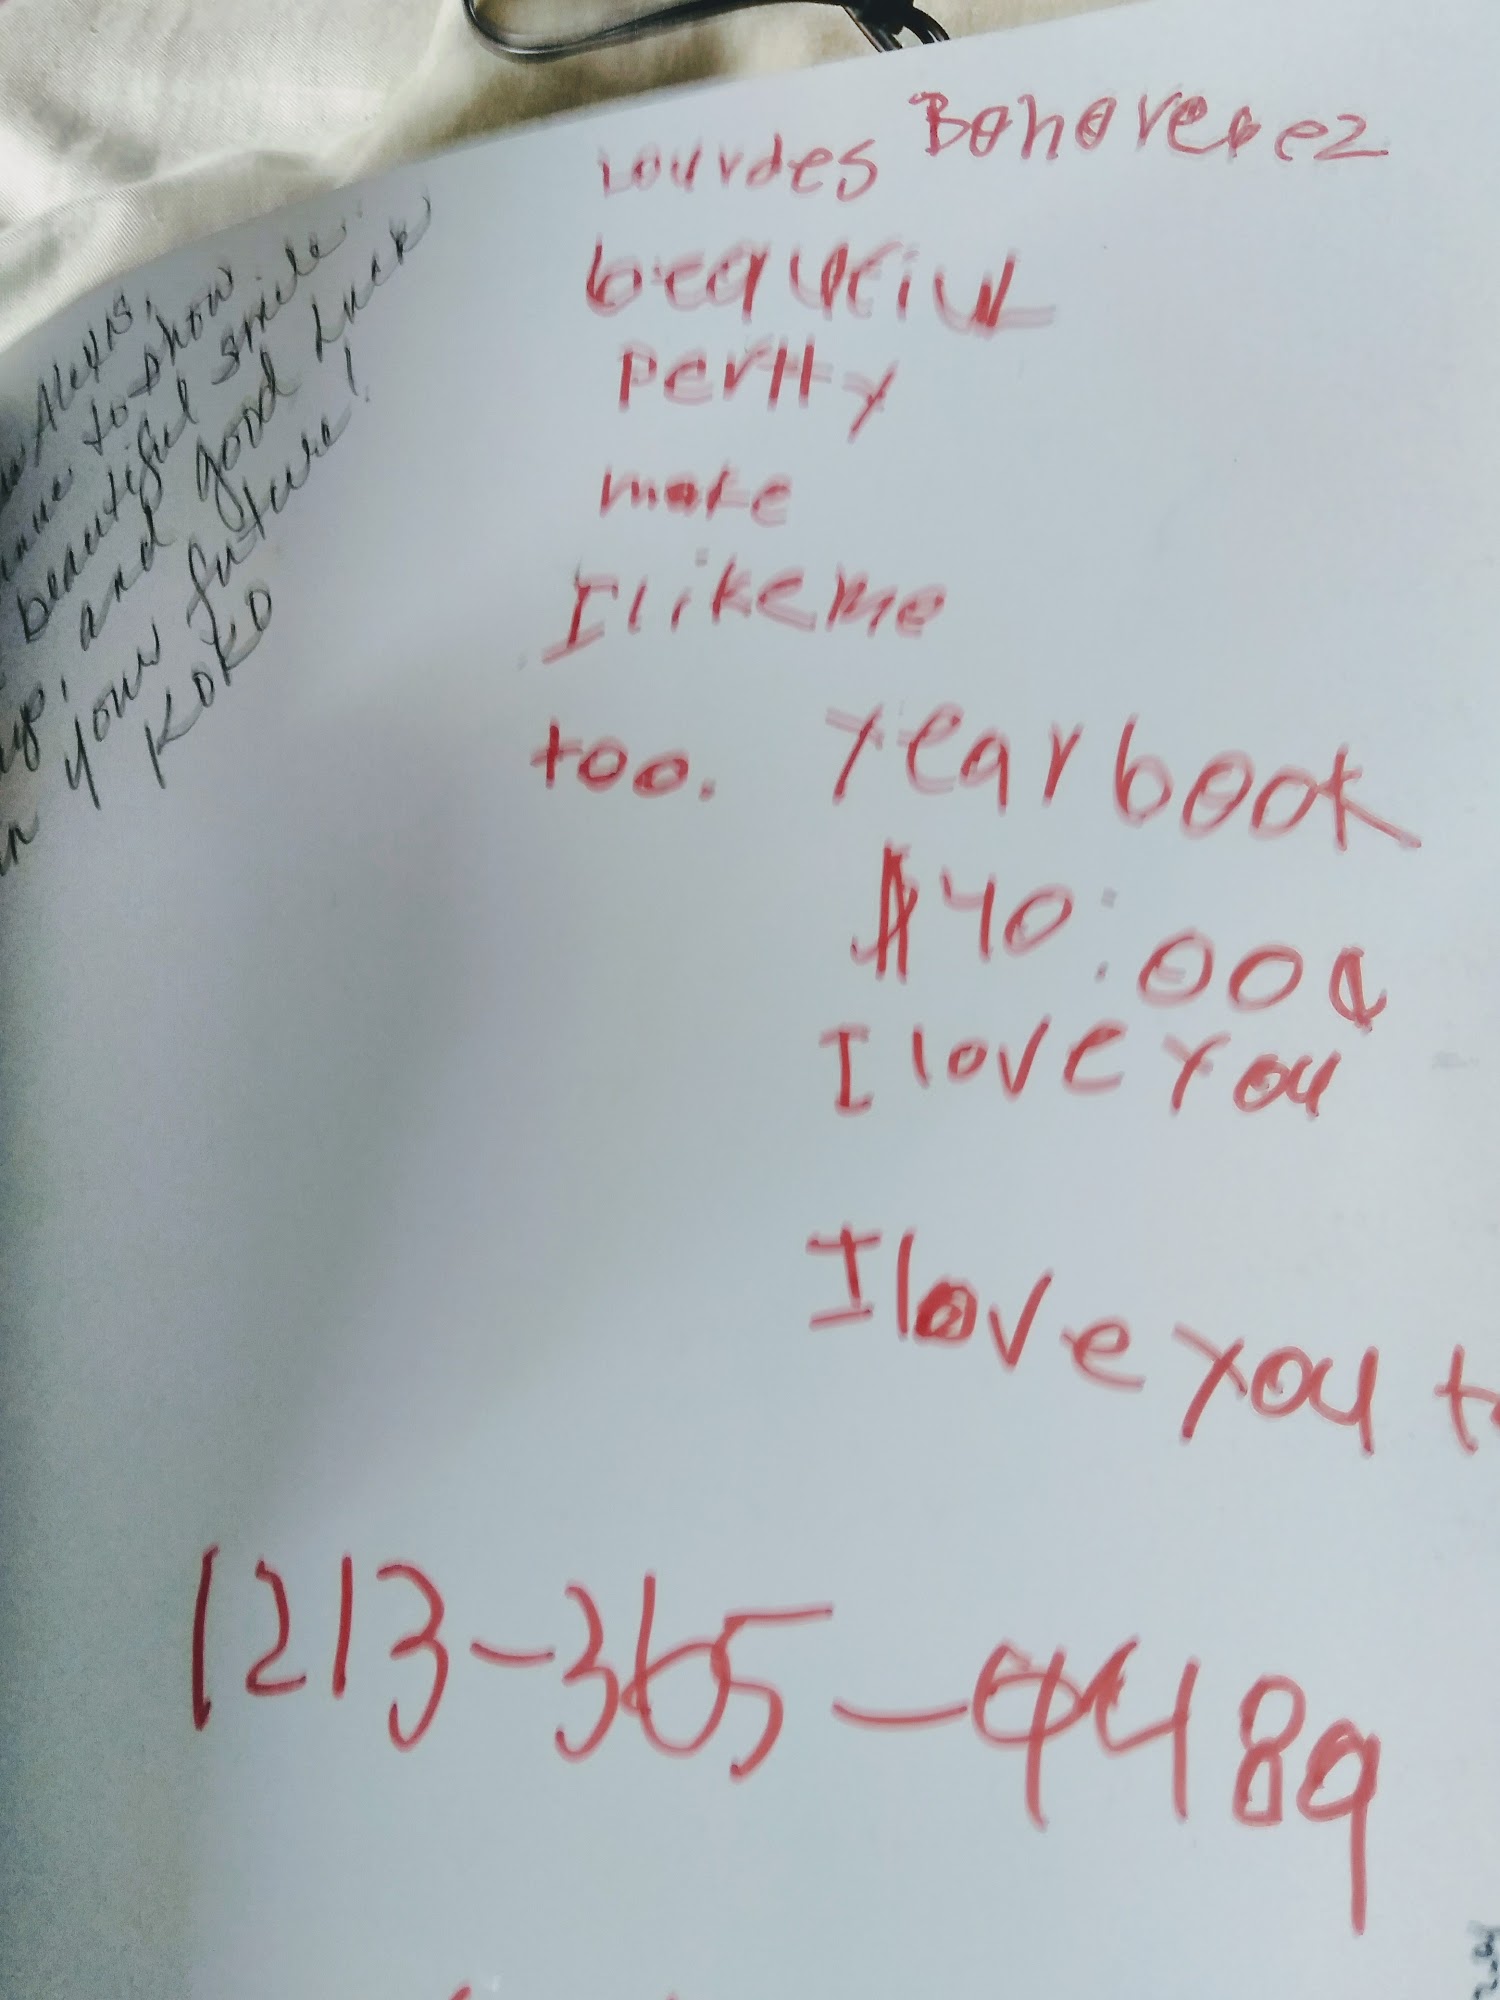 Alexis,
to show
beautiful smile
and good luck
in your future!
KOKO
Lourdes
bequeiul
pertty
make
I like me
too. Yearbook
$40:00¢
I love you
I love you
1213-365-4489